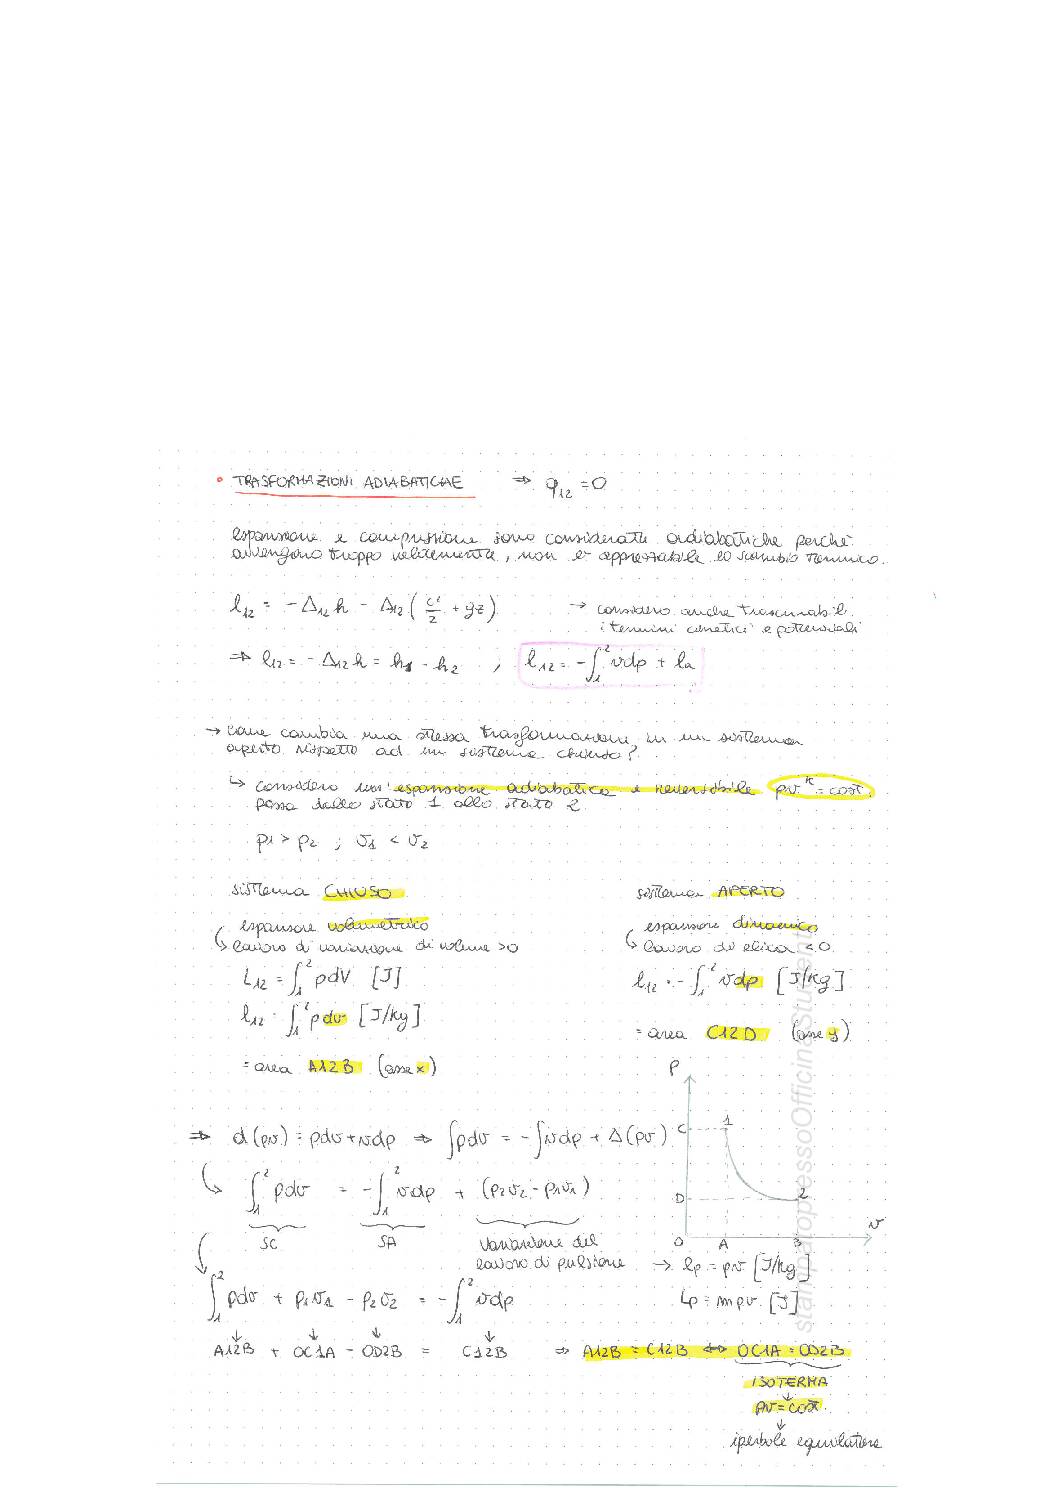 • TRASFORMAZIONI ADIABATICHE ⇒ q₁₂ = 0
espansione e compressione sono considerate adiabatiche perché
avvengono troppo velocemente, non è apprezzabile lo scambio termico.
l₁₂ = -Δ₁₂h - Δ₁₂(c²/2 + gz) → considero anche trascurabili
i termini cinetici e potenziali
⇒ l₁₂ = -Δ₁₂h = h₁ - h₂ , l₁₂ = -∫₁² vdp + la
→ come cambia una stessa trasformazione in un sistema
aperto rispetto ad un sistema chiuso?
↳ considero un'espansione adiabatica e reversibile pvᵏ = cost.
passa dallo stato 1 allo stato 2
p₁ > p₂ ; v₁ < v₂
sistema CHIUSO
espansore volumetrico
↳ lavoro di variazione di volume >0
L₁₂ = ∫₁² pdV [J]
l₁₂ = ∫₁² pdv [J/kg]
= area A12B (asse x)
sistema APERTO
espansore dinamico
↳ lavoro di elica <0
l₁₂ = -∫₁² vdp [J/kg]
= area C12D (asse y)
P
C 1
D 2
O A B v
⇒ d(pv) = pdv + vdp ⇒ ∫pdv = -∫vdp + Δ(pv)
↳ ∫₁² pdv = -∫₁² vdp + (p₂v₂ - p₁v₁)
SC SA variazione del
lavoro di pulsione → lp = pv [J/kg]
Lp = mpv [J]
∫₁² pdv + p₁v₁ - p₂v₂ = -∫₁² vdp
A12B + OC1A - OD2B = C12B ⇒ A12B = C12B ⇔ OC1A = OD2B
ISOTERMA
↓
pv = cost.
↓
iperbole equilatera
stampatopressoOfficinaStudenti